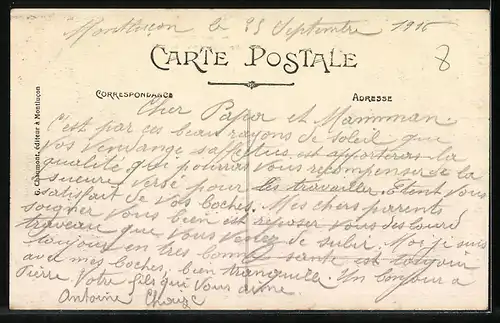 Montluçon le 25 Septembre 1916
8
CARTE POSTALE
CORRESPONDANCE
ADRESSE
G. Chaumont, éditeur à Montluçon
Cher Papa et Mamman.
C'est par ces beau rayons de soleil que
vos vendange saffettus est apporteras la
qualité qui pourras vous recompenser de la
sueure versé pour les travailler. Etent vous
satisfait de vos boches. Mes chers parents
soigner vous bien et reposer vous des lourd
traveau que vous venez de subir. Moi je suis
toujour en tres bonne sante est toujour
avec mes boches, bien tranquille. Un bonjour a
Pierre. Votre fils qui vous aime
Antoine